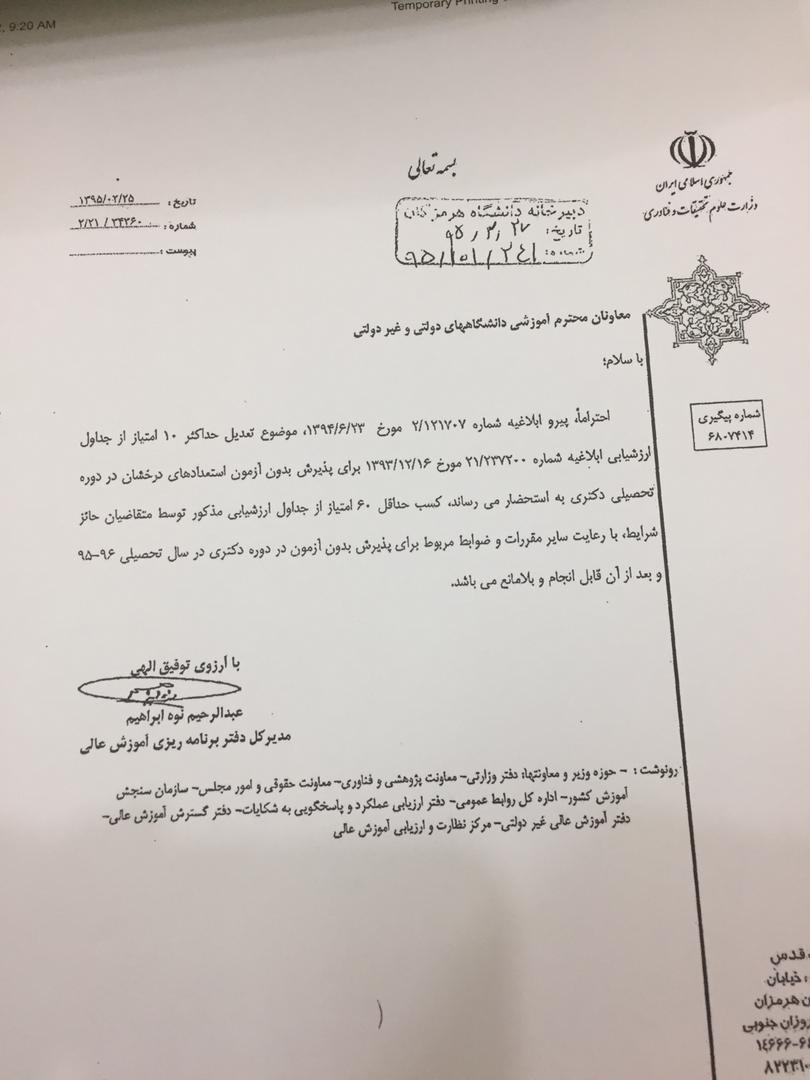 9:20 AM
Temporary Printing
بسمه تعالی
جمهوری اسلامی ایران
وزارت علوم تحقیقات و فناوری
تاریخ: ۱۳۹۵/۰۲/۲۵
شماره: ۲/۲۱ / ۳۴۳۶۰
پیوست:
دبیرخانه دانشگاه هرمزگان
تاریخ: ۹۵/۳/۲۷
شماره: ۹۵/۱۰۱/۲۴۱
معاونان محترم آموزشی دانشگاههای دولتی و غیر دولتی
با سلام؛
شماره پیگیری
۶۸۰۷۴۱۴
احتراماً، پیرو ابلاغیه شماره ۲/۱۲۱۷۰۷ مورخ ۱۳۹۴/۶/۲۳، موضوع تعدیل حداکثر ۱۰ امتیاز از جداول
ارزشیابی ابلاغیه شماره ۲۱/۲۳۷۲۰۰ مورخ ۱۳۹۳/۱۲/۱۶ برای پذیرش بدون آزمون استعدادهای درخشان در دوره
تحصیلی دکتری به استحضار می رساند، کسب حداقل ۶۰ امتیاز از جداول ارزشیابی مذکور توسط متقاضیان حائز
شرایط، با رعایت سایر مقررات و ضوابط مربوط برای پذیرش بدون آزمون در دوره دکتری در سال تحصیلی ۹۶-۹۵
و بعد از آن قابل انجام و بلامانع می باشد.
با آرزوی توفیق الهی
عبدالرحیم نوه ابراهیم
مدیرکل دفتر برنامه ریزی آموزش عالی
رونوشت: - حوزه وزیر و معاونتها: دفتر وزارتی- معاونت پژوهشی و فناوری- معاونت حقوقی و امور مجلس- سازمان سنجش
آموزش کشور- اداره کل روابط عمومی- دفتر ارزیابی عملکرد و پاسخگویی به شکایات- دفتر گسترش آموزش عالی-
دفتر آموزش عالی غیر دولتی- مرکز نظارت و ارزیابی آموزش عالی
قدس
خیابان
هرمزان
روزان جنوبی
۱۴۶۶۶-۶۴
۸۲۲۳۱۰